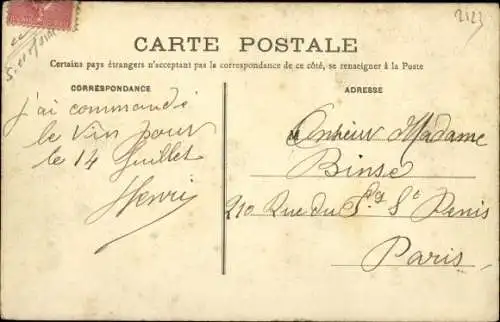 2123
CARTE POSTALE
Certains pays étrangers n'acceptant pas la correspondance de ce côté, se renseigner à la Poste
CORRESPONDANCE
j'ai commandé
le vin pour
le 14 Juillet
Henri
ADRESSE
Madame
Binse
210 Rue du Fg St Denis
Paris